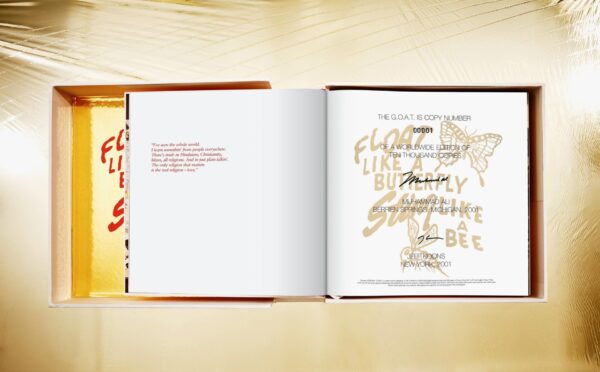 "I've seen the whole world.
I learn somethin' from people everywhere.
There's truth in Hinduism, Christianity,
Islam, all religions. And in just plain talkin'.
The only religion that matters
is the real religion – love."
THE G.O.A.T. IS COPY NUMBER
00001
OF A WORLDWIDE EDITION OF
TEN THOUSAND COPIES
Muhammad Ali
MUHAMMAD ALI
BERRIEN SPRINGS, MICHIGAN, 2001
JEFF KOONS
NEW YORK 2001
FLOAT
LIKE A
BUTTERFLY
STING LIKE
A
BEE